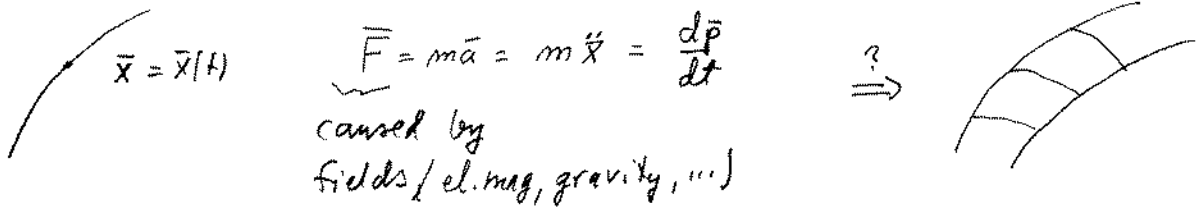 x̄ = x̄(t)
F̄ = mā = m ẍ̄ = dp̄/dt
?
⇒
caused by
fields (el.mag, gravity, ...)